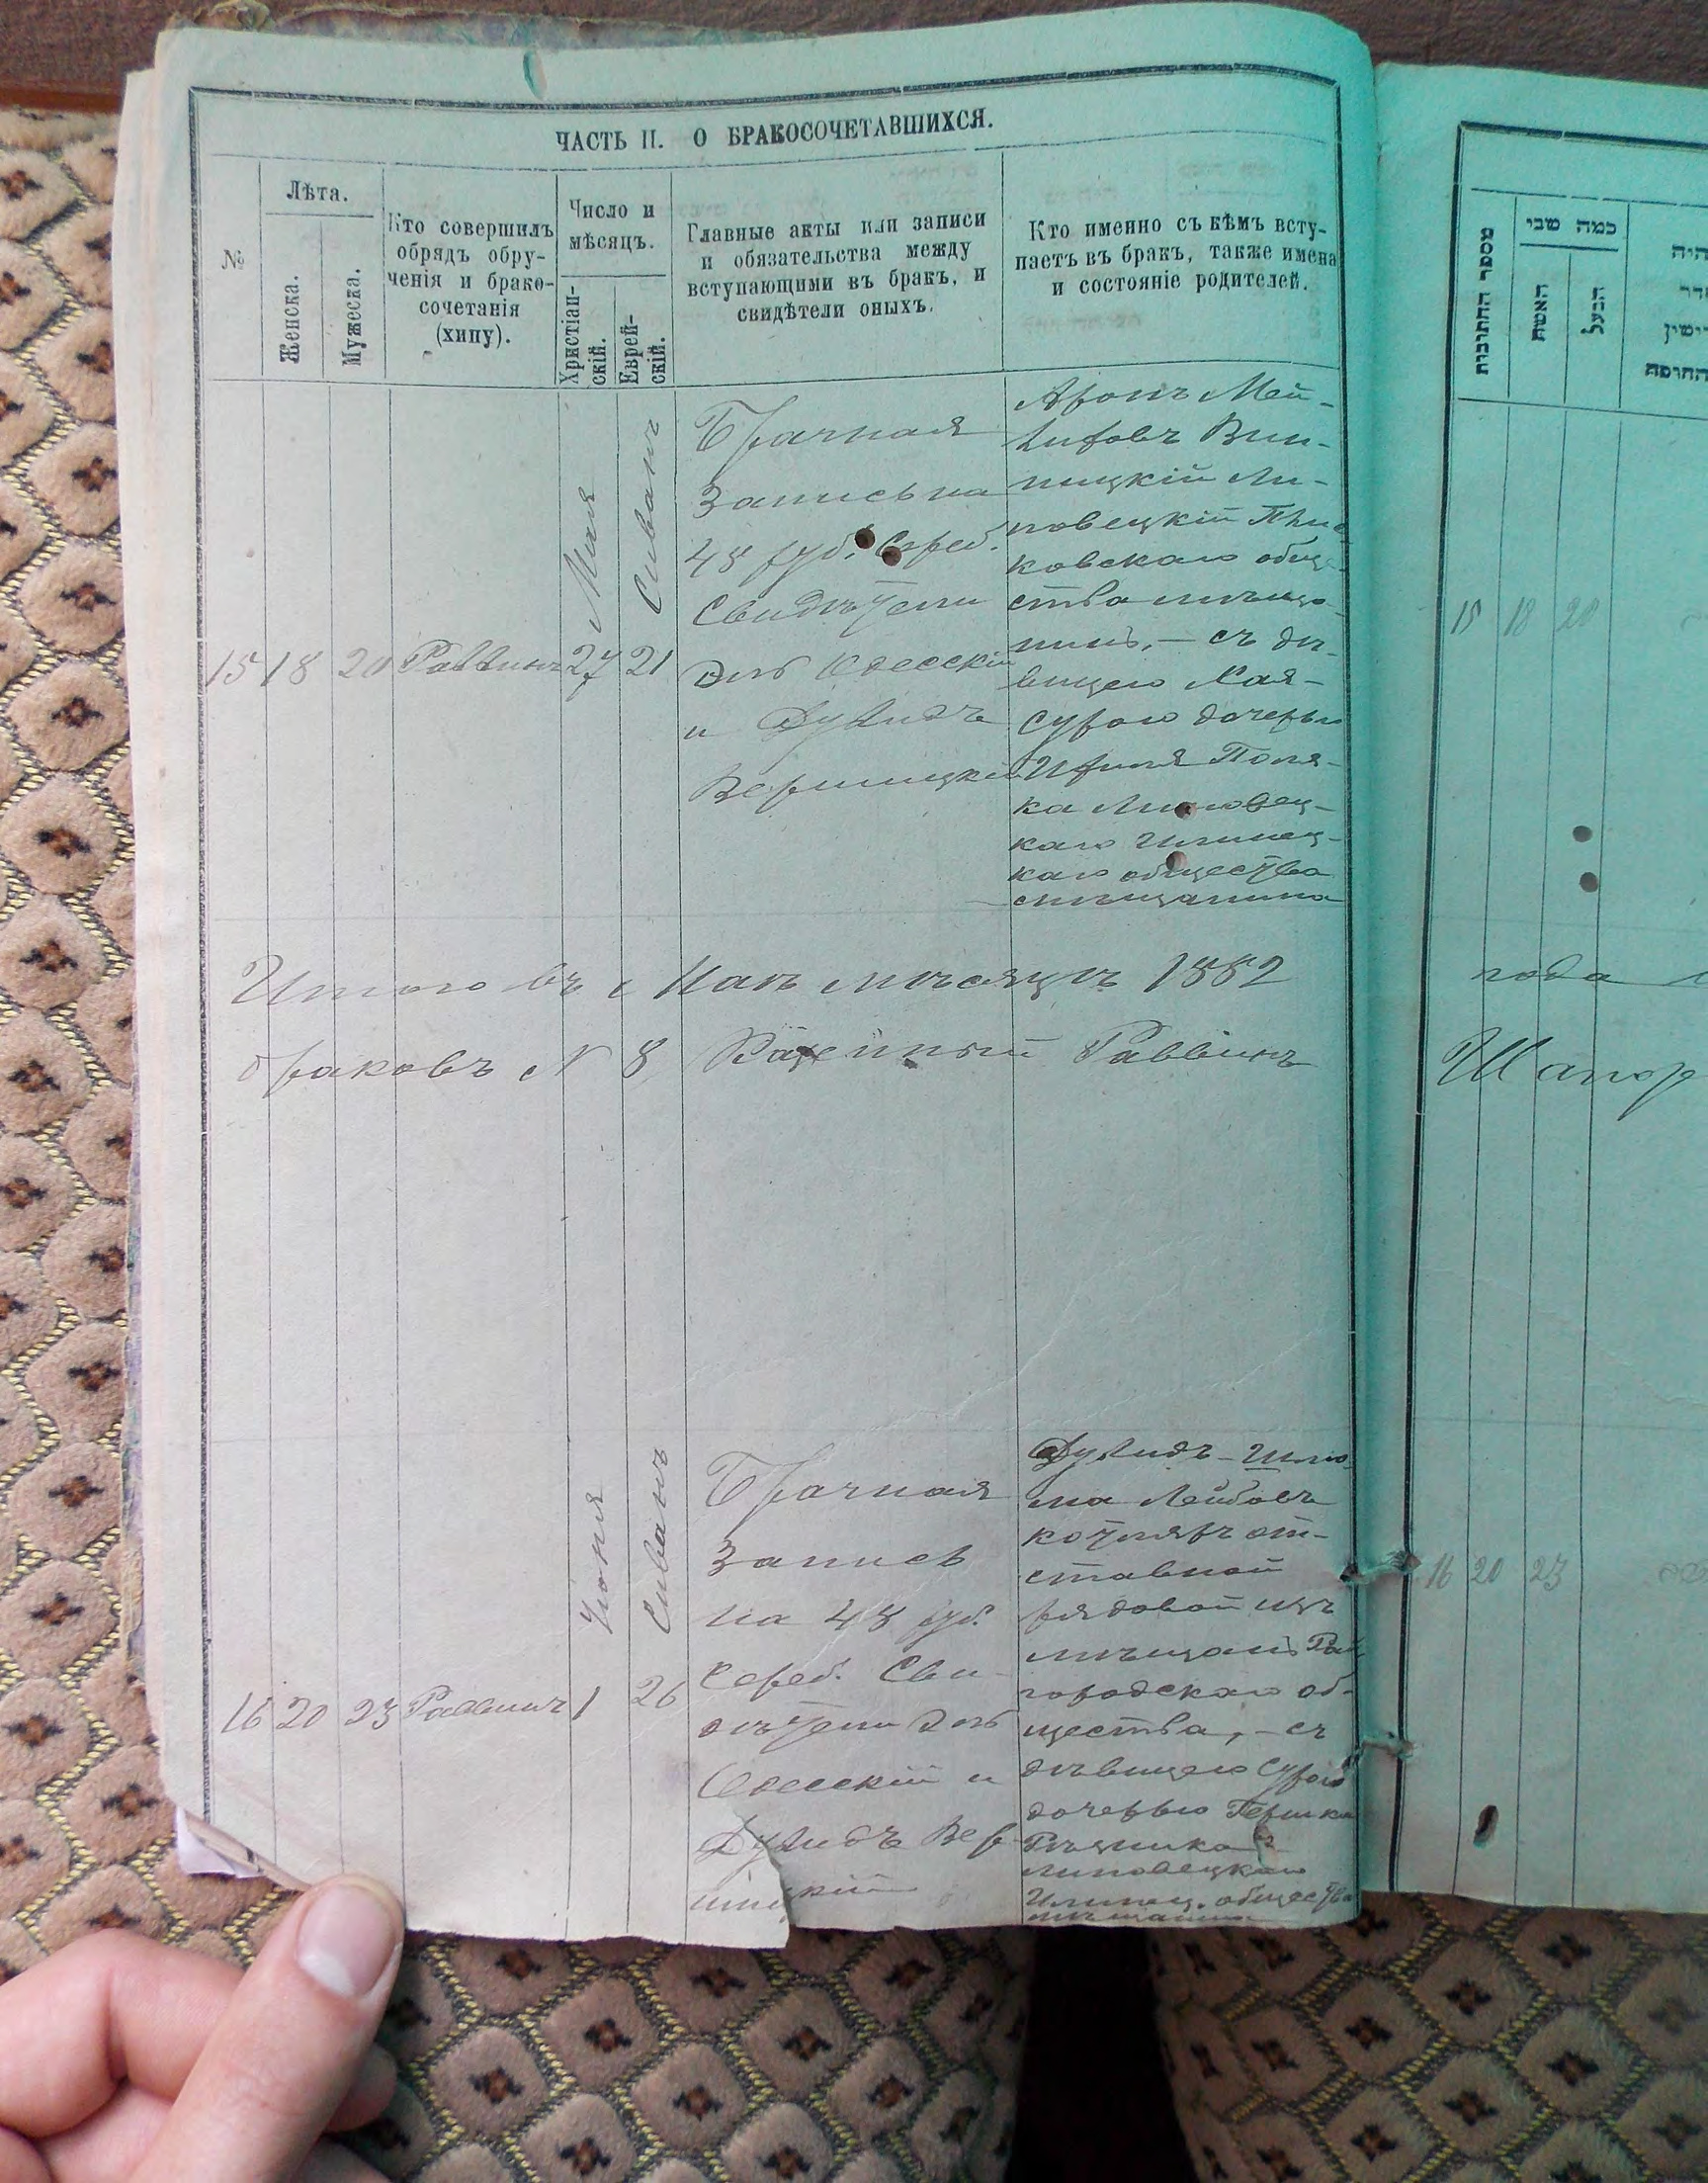 ЧАСТЬ II. О БРАКОСОЧЕТАВШИХСЯ.
№
Лѣта.
Женска.
Мужеска.
Кто совершилъ
обрядъ обру-
ченія и брако-
сочетанія
(хипу).
Число и
мѣсяцъ.
Христіан-
скій.
Еврей-
скій.
Главные акты или записи
и обязательства между
вступающими въ бракъ, и
свидѣтели оныхъ.
Кто именно съ кѣмъ всту-
паетъ въ бракъ, также имена
и состояніе родителей.
15
18
20
Раввинъ
Мая
27
Сиванъ
21
Брачная
Запись на
48 руб. Сереб.
Свидѣтели
Эль Одесскій
и Дувидъ
Вершицкій
Аронъ Мей-
Вин-
ницкій Ли-
повецкій
ковскаго обще-
ства мѣща-
нинъ, – съ дѣ-
вицею Хая-
Сурою дочерью
Поля-
ка Липовец-
каго Илинец-
каго общества
мѣщанина
Итого въ Маѣ мѣсяцѣ 1882
браковъ № 8 Казенный Раввинъ
16
20
23
Раввинъ
Іюня
1
Сиванъ
26
Брачная
Запись
на 48 руб.
Сереб. Сви-
дѣтели Эль
Одесскій и
Дувидъ Вер-
шицкій
Дувидъ-Шло-
ма Лейбовъ
Котляръ от-
ставной
рядовой изъ
мѣщанъ
городскаго об-
щества, – съ
дѣвицею Сурою
дочерью Гершка
Рѣзника
Липовецкаго
Илинец. общества
мѣщанина
מספר החתונות
כמה שני
האשה
הבעל
15
18
20
года
16
20
23